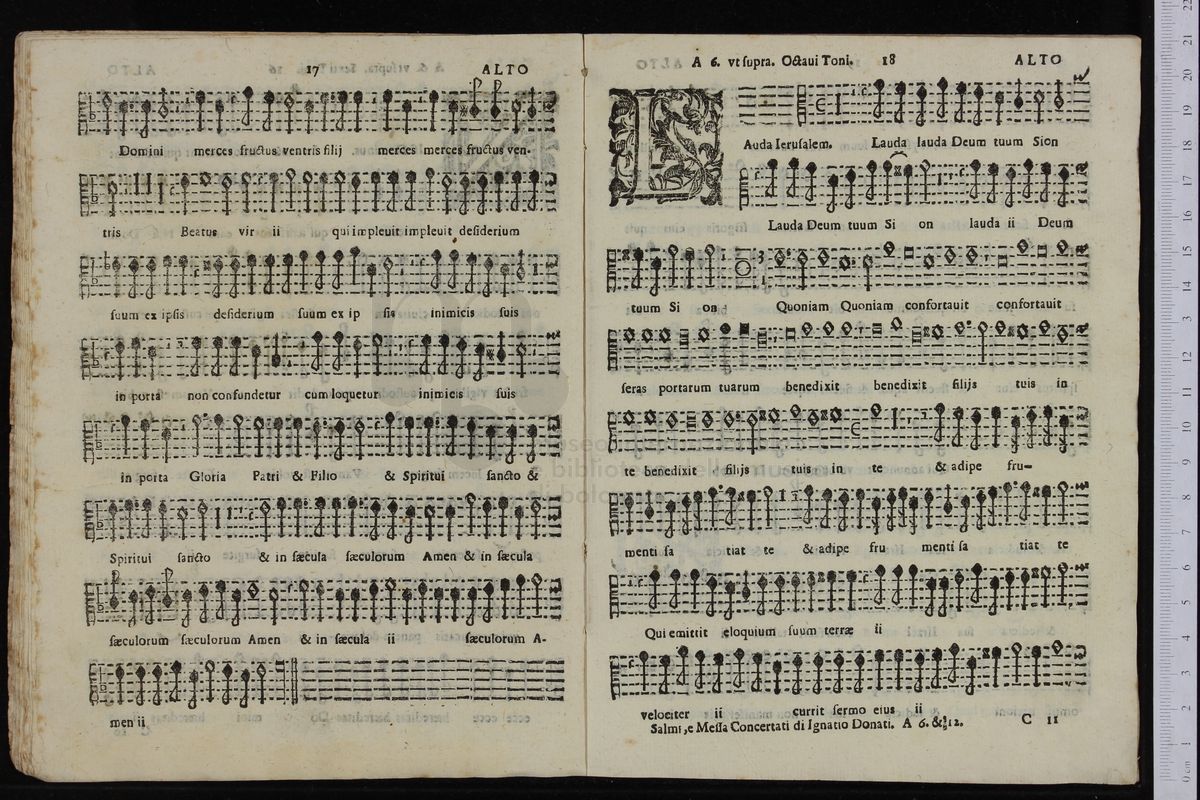 17 ALTO
Domini merces fructus ventris filij merces merces fructus ven-
tris Beatus vir ii qui impleuit impleuit desiderium
suum ex ipsis desiderium suum ex ip sis inimicis suis
in porta non confundetur cum loquetur inimicis suis
in porta Gloria Patri & Filio & Spiritui sancto &
Spiritui sancto & in sæcula sæculorum Amen & in sæcula
sæculorum sæculorum Amen & in sæcula ii sæculorum A-
men ii
A 6. vt supra. Octaui Toni. 18 ALTO
L
Auda Ierusalem. Lauda lauda Deum tuum Sion
Lauda Deum tuum Si on lauda ii Deum
tuum Si on Quoniam Quoniam confortauit confortauit
seras portarum tuarum benedixit benedixit filijs tuis in
te benedixit filijs tuis in te & adipe fru-
menti sa tiat te & adipe fru menti sa tiat te
Qui emittit eloquium suum terræ ii
velociter ii currit sermo eius ii
Salmi, e Messa Concertati di Ignatio Donati. A 6. & 12. C 11